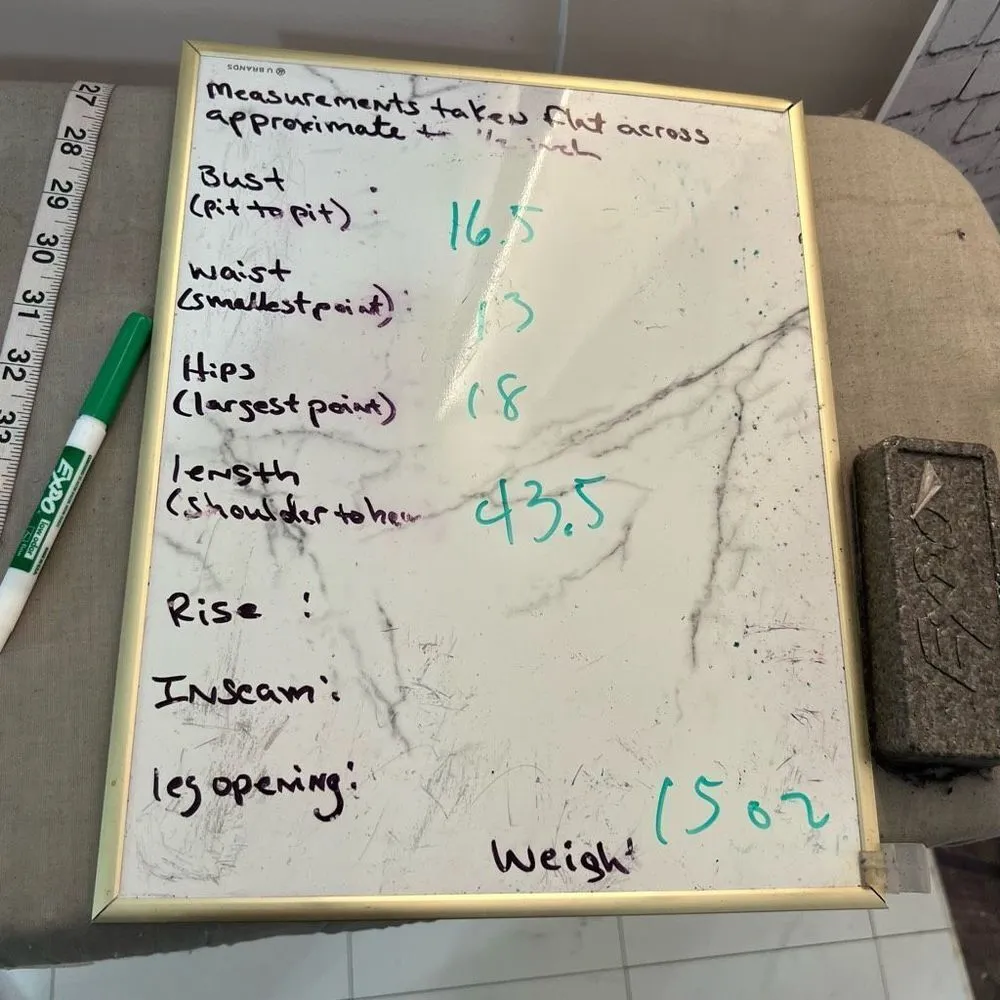 U BRANDS
Measurements taken flat across
approximate to 1/2 inch
Bust
(pit to pit) : 16.5
Waist
(smallest point) : 13
Hips
(largest point) 18
length
(shoulder to hem 43.5
Rise :
Inseam :
leg opening :
15 oz
Weigh
27
28
29
30
31
32
33
EXPO
low odor
EXPO